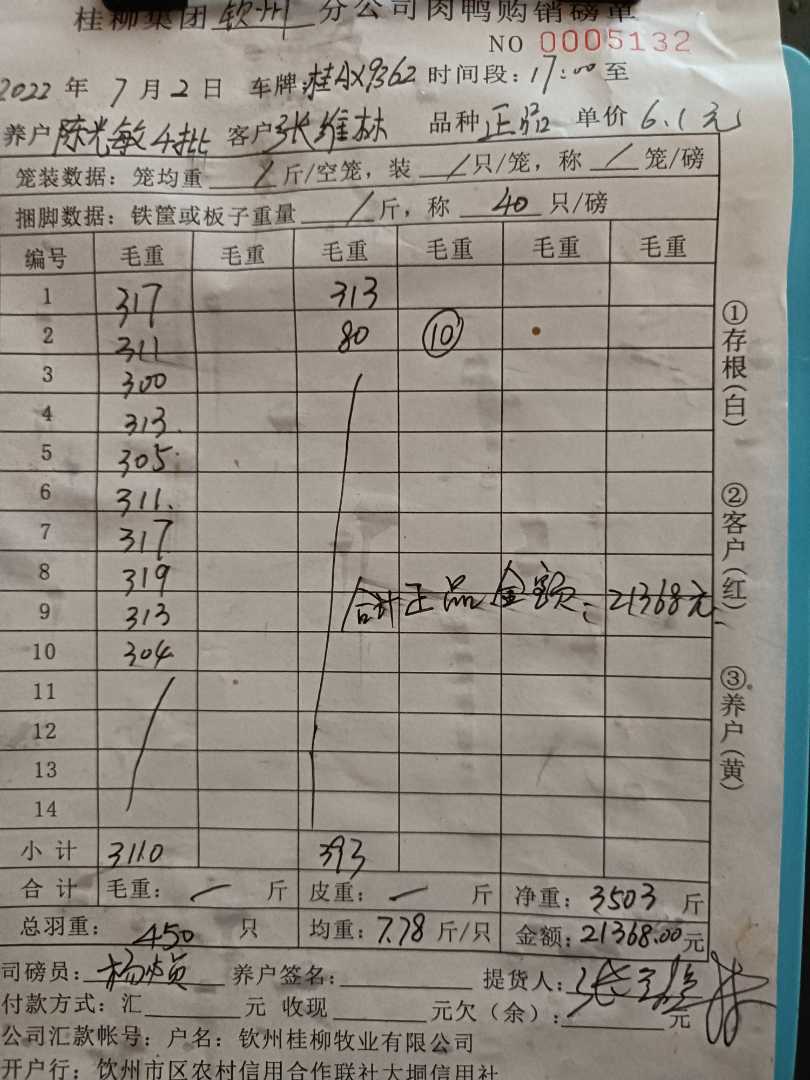 桂柳集团钦州分公司肉鸭购销磅单
NO 0005132
2022年7月2日 车牌:桂AX9362 时间段:17:00至
养户 陈光敏4批 客户 张维林 品种 正品 单价 6.1元
笼装数据: 笼均重 / 斤/空笼, 装 / 只/笼, 称 / 笼/磅
捆脚数据: 铁筐或板子重量 / 斤, 称 40 只/磅
编号 毛重 毛重 毛重 毛重 毛重 毛重
1 317 313
2 311 80 ⑩
3 300
4 313
5 305
6 311
7 317
8 319
合计正品金额:21368元
9 313
10 304
11
12
13
14
小计 3110 393
合计 毛重: — 斤 皮重: — 斤 净重: 3503 斤
总羽重: 450 只 均重: 7.78 斤/只 金额: 21368.00元
司磅员: 养户签名: 提货人:
付款方式: 汇 元 收现 元欠(余): 元
公司汇款帐号: 户名: 钦州桂柳牧业有限公司
开户行: 钦州市区农村信用合作联社大垌信用社
①存根(白)
②客户(红)
③养户(黄)